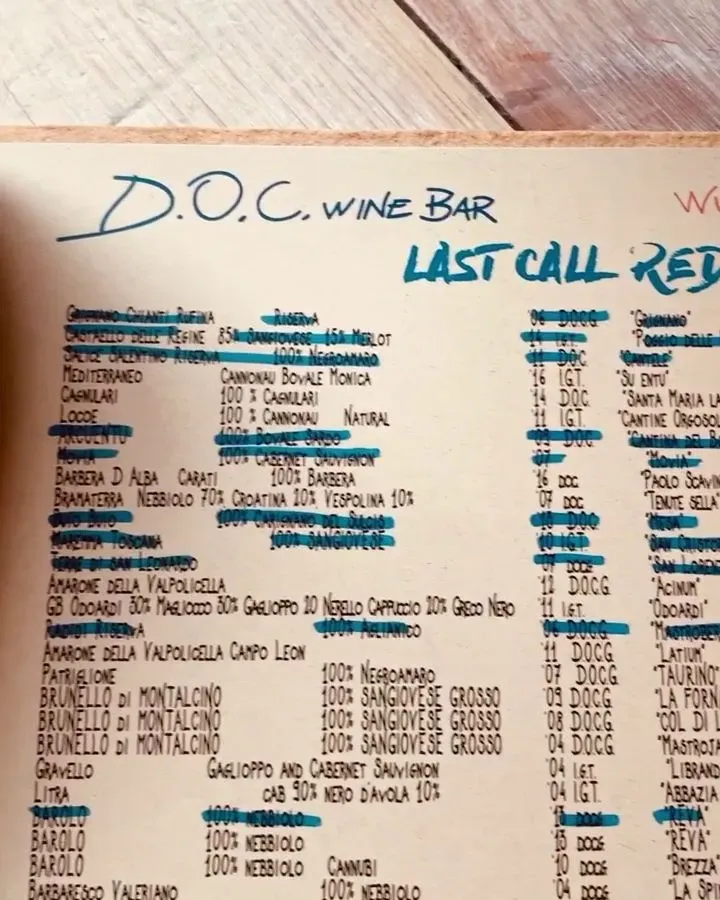 D.O.C. WINE BAR
LAST CALL RED
GRIGNANO CHIANTI RUFINA RISERVA '06 D.O.C.G. "GRIGNANO"
CASTAELLO DELLE REGINE 85% SANGIOVESE 15% MERLOT '14 I.G.T. "POGGIO DELLE
SALICE SALENTINO RISERVA 100% NEGROAMARO '11 DOC "CANTELE"
MEDITERRANEO CANNONAU BOVALE MONICA '16 I.G.T. "SU ENTU"
CAGNULARI 100 % CAGNULARI '14 D.O.C. "SANTA MARIA LA
LOCOE 100 % CANNONAU NATURAL '11 I.G.T. "CANTINE ORGOSOL
ARCUENTU 100% BOVALE SARDO '09 DOC "CANTINA DEL B
MOVIA 100% CABERNET SAUVIGNON '07 "MOVIA"
BARBERA D ALBA CARATI 100% BARBERA '16 DOC "PAOLO SCAVIN
BRAMATERRA NEBBIOLO 70% CROATINA 20% VESPOLINA 10% '07 DOC "TENUTE SELLA"
100% CARIGNANO DEL SULCIS DOC "MESA"
MAREMMA TOSCANA 100% SANGIOVESE '10 I.G.T. "SAN CRISTO
TERRE DI SAN LEONARDO '07 DOCG "SAN LOREN
AMARONE DELLA VALPOLICELLA '12 D.O.C.G. "ACINUM"
GB ODOARDI 30% MAGLIOCCO 30% GAGLIOPPO 20 NERELLO CAPPUCCIO 20% GRECO NERO '11 I.G.T. "ODOARDI"
RADICI RISERVA 100% AGLIANICO '06 D.O.C.G. "MASTROBER
AMARONE DELLA VALPOLICELLA CAMPO LEON '11 D.O.C.G. "LATIUM"
PATRIGLIONE 100% NEGROAMARO '07 D.O.C.G. "TAURINO"
BRUNELLO DI MONTALCINO 100% SANGIOVESE GROSSO '09 D.O.C.G. "LA FORN
BRUNELLO DI MONTALCINO 100% SANGIOVESE GROSSO '08 D.O.C.G. "COL DI L
BRUNELLO DI MONTALCINO 100% SANGIOVESE GROSSO '04 D.O.C.G. "MASTROJA
GRAVELLO GAGLIOPPO AND CABERNET SAUVIGNON '04 I.G.T. "LIBRAND
LITRA CAB 90% NERO D'AVOLA 10% '04 I.G.T. "ABBAZIA
BAROLO 100% NEBBIOLO '13 DOCG "REVA"
BAROLO 100% NEBBIOLO '13 DOCG "REVA"
BAROLO 100% NEBBIOLO CANNUBI '10 DOCG "BREZZA"
BARBARESCO VALERIANO 100% NEBBIOLO '04 DOCG "LA SPI